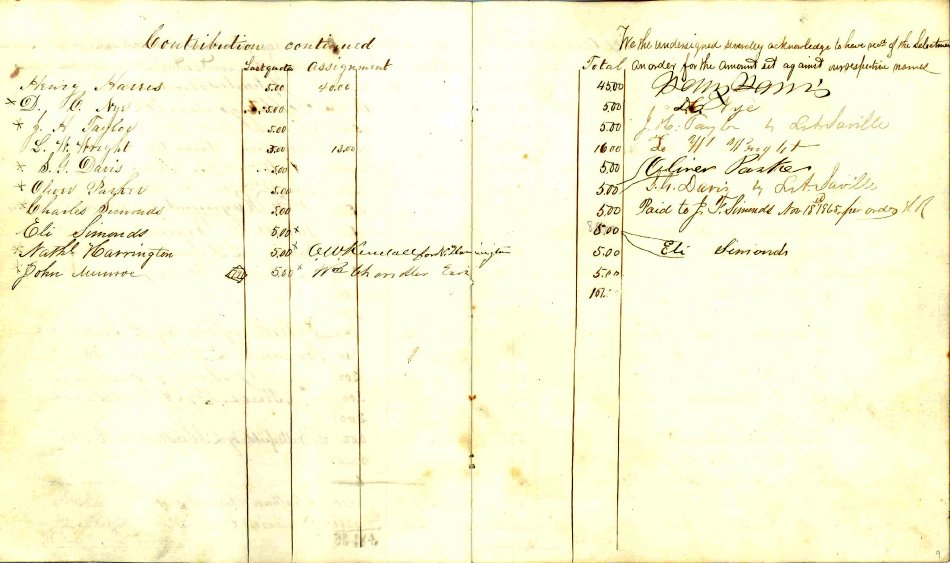 Contribution continued
Last quota Assignment
Henry Harris 5.00 40.00
× D. C. Nye 5.00
× J. H. Taylor 5.00
L. W. Wright 3.00 13.00
× S. G. Davis 5.00
× Oliver Parker 5.00
× Charles Simonds 5.00
Eli Simonds 5.00 ×
× Nathl Harrington 5.00 × O W Kendall for N. Harrington
× John Munroe 5.00 × Wm Chandler
We the undersigned severelley acknowledge to have recd of the Selectmen
Total an order for the amount set against our respective names
45.00 Henry Harris
5.00 D C Nye
5.00 J. H. Taylor by L A Saville
16.00 L. W. Wright
5.00 Oliver Parker
5.00 S. G. Davis by L A Saville
5.00 Paid to J. F. Simonds Nov 18th 1865 per order
5.00
5.00 Eli Simonds
5.00
9